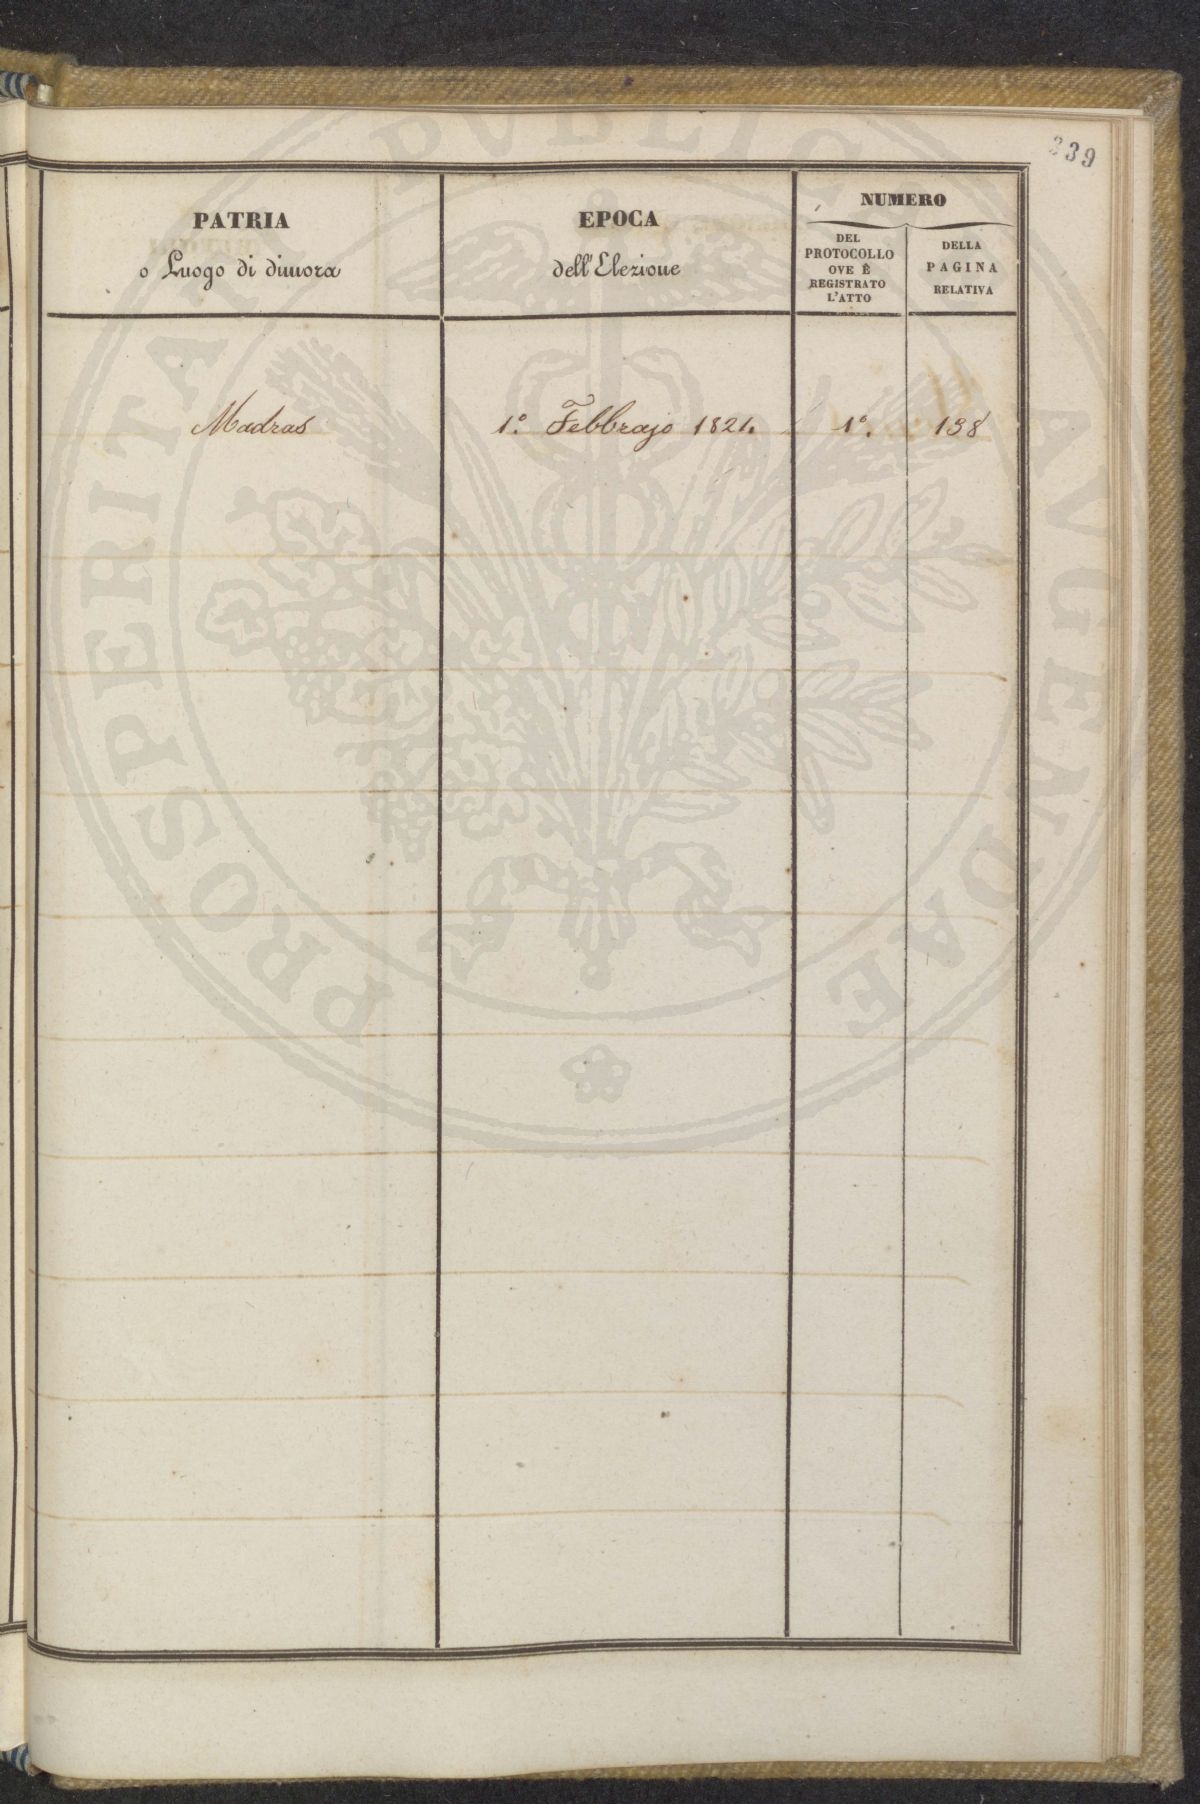 339
PATRIA
o Luogo di dimora
EPOCA
dell'Elezione
NUMERO
DEL
PROTOCOLLO
OVE È
REGISTRATO
L'ATTO
DELLA
PAGINA
RELATIVA
Madras 1.° Febbrajo 1821. 1°. 138
PROSPERITATI PVBLICAE AVGENDAE